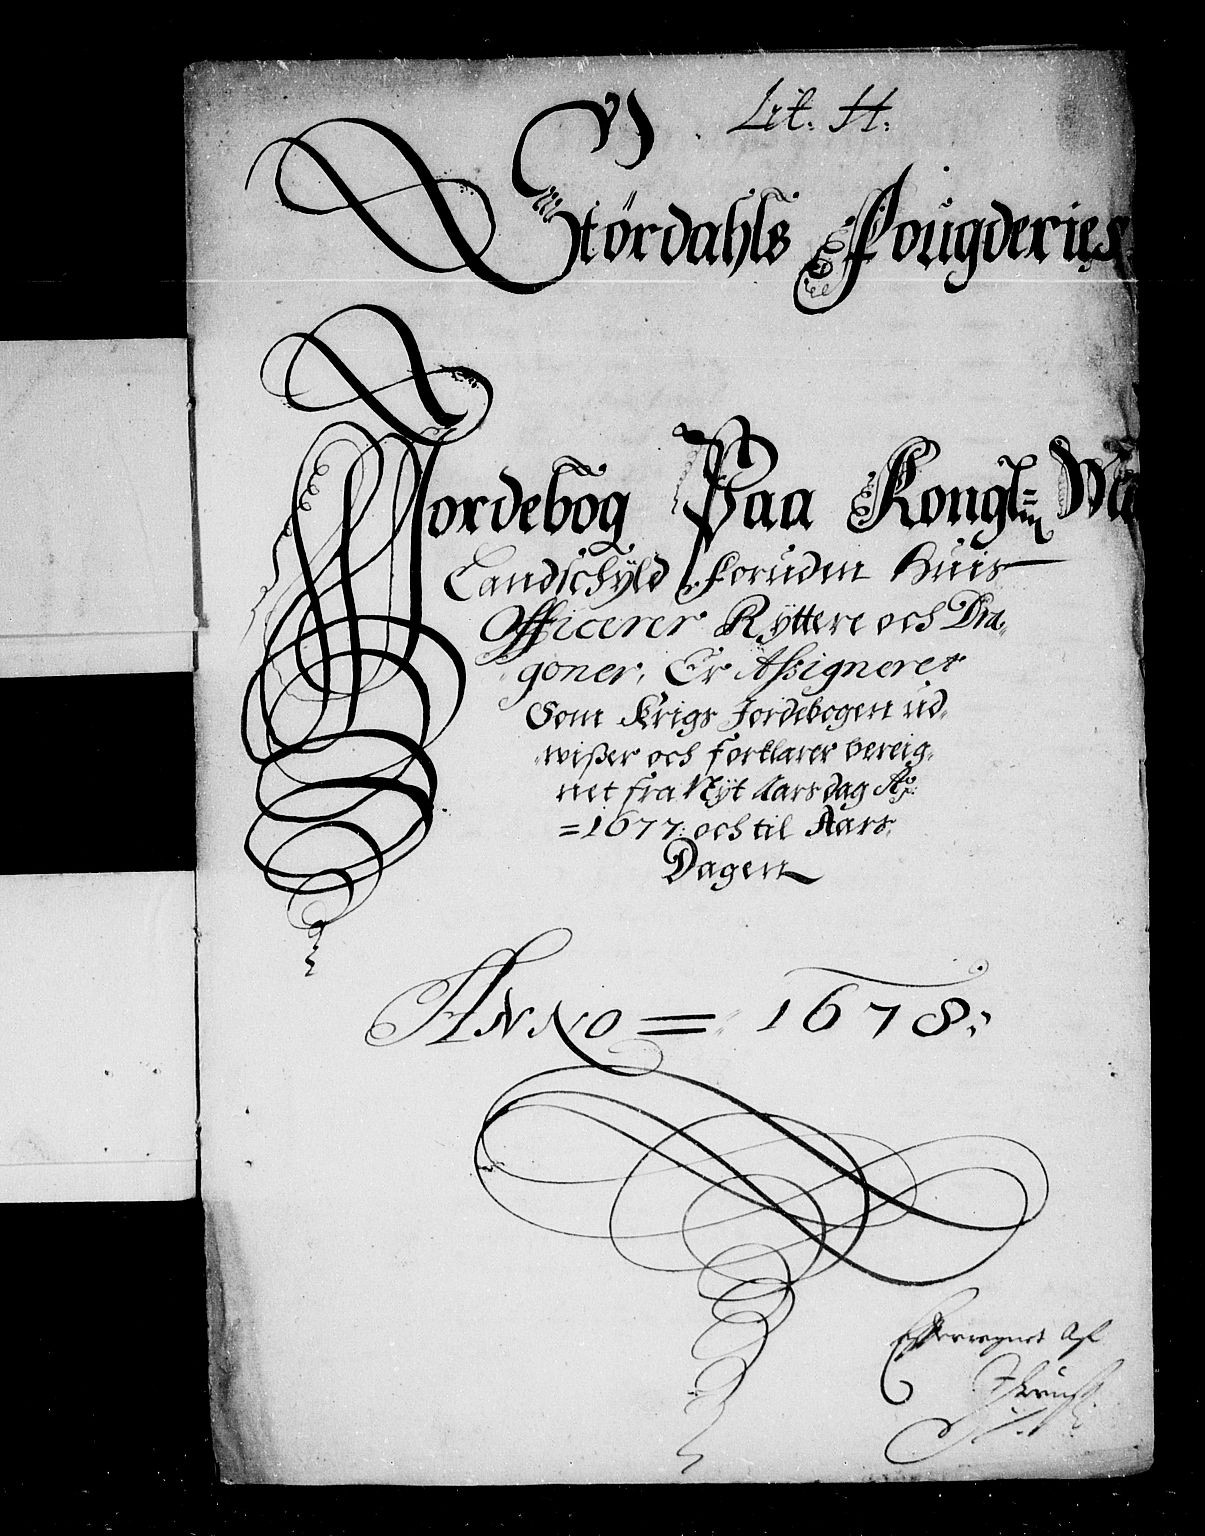 Lit. H.
Stördahls Fougderies
Jordebog Paa Kongl: Ma
Landschyld foruden huis
Officerer Ryttere och Dra-
goner, Er Assigneret
Som Krigs Jordebogen ud-
wißer och forklarer bereig-
net fra Nyt Aarsdag Ao:
=1677: och til Aars
Dagen
Anno = 1678:
Efterregnet Af